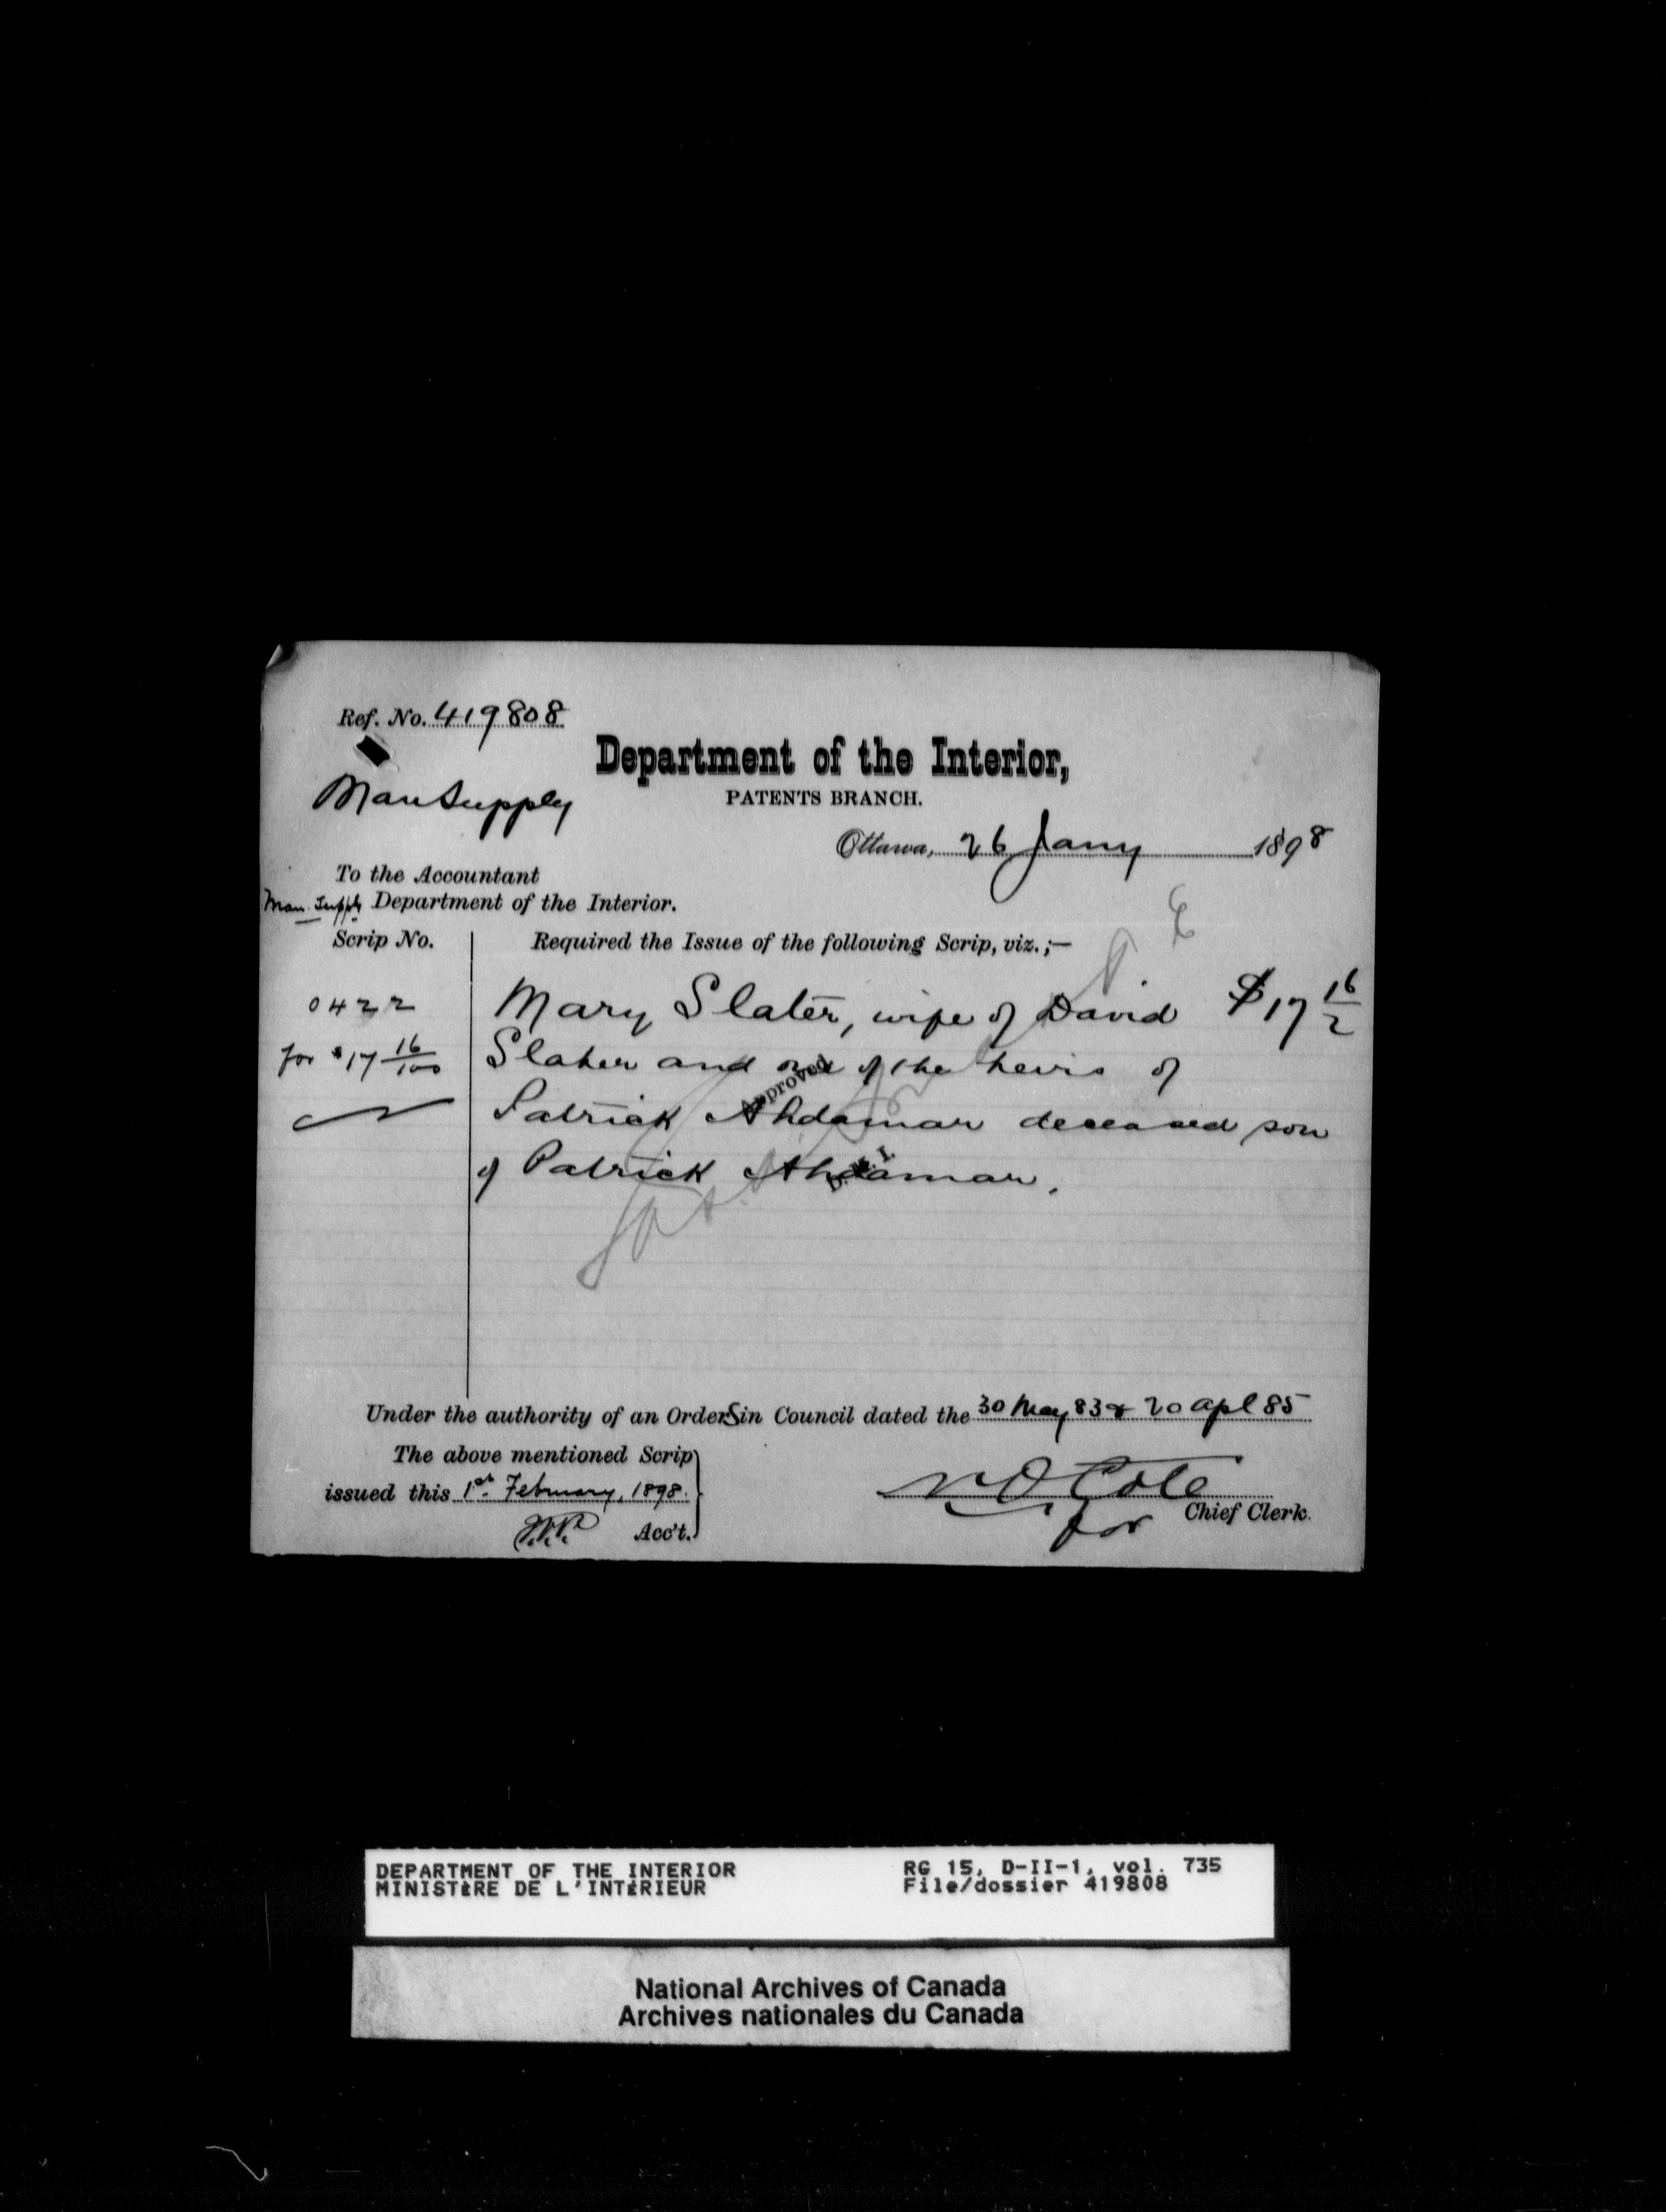 Ref. No. 419808
Man Supply
Department of the Interior,
PATENTS BRANCH.
Ottawa, 26 Jany 1898
To the Accountant
Man. Supply Department of the Interior.
Scrip No.
Required the Issue of the following Scrip, viz.;—
0422
Mary Slater, wife of David $17 16/
for $17 16/100
Slater and one of the heirs of
Approved
Patrick Ahdamar deceased son
of Patrick Ahdamar.
Under the authority of an Orders in Council dated the 30 May 83 & 20 apl 85
The above mentioned Scrip
issued this 1st February, 1898.
Acc't.
N.O. Cote
for Chief Clerk.
DEPARTMENT OF THE INTERIOR
MINISTÈRE DE L'INTÉRIEUR
RG 15, D-II-1, vol. 735
File/dossier 419808
National Archives of Canada
Archives nationales du Canada